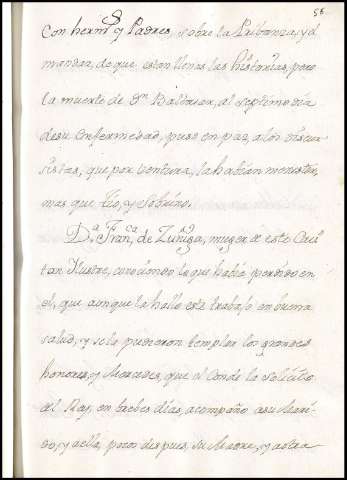 56
Con herm.s y Padres, sobre la Pribanza, y el
mandar, de que estan llenas las historias, pero
la muerte de Dn Baltasar, al septimo dia
de su enfermedad, puso en paz, a los discur
sistas, que por ventura, la habian menester,
mas que tio, y sobrino.
D.a Fran.ca de Zuñiga, muger de este Capi
tan Ilustre, conociendo lo que habia perdido en
el, que aunque la hallo este trabajo en buena
salud, y se le pudieron templar los grandes
honores, y Mercedes, que el Conde la solicito
del Rey, en trece dias, acompaño a su Mari
do, y a ella, poco despues, su Madre, y a otra